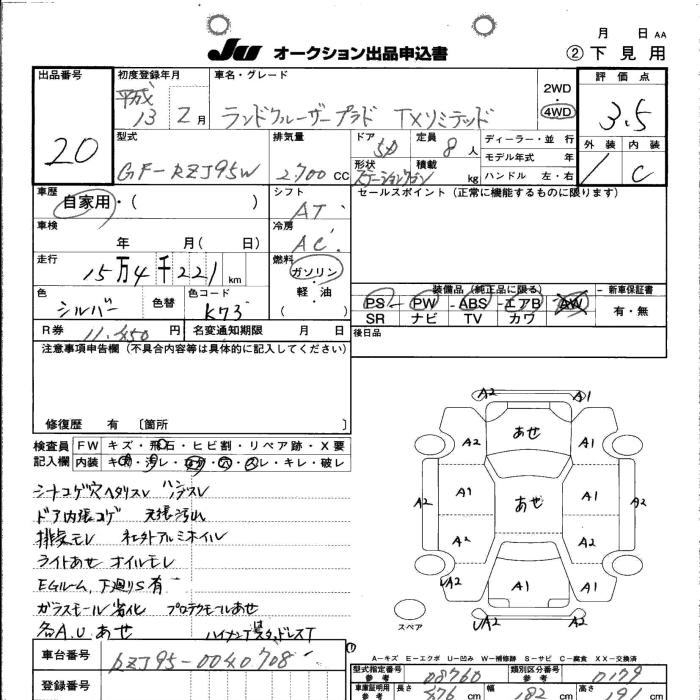 月 日 AA
JU オークション出品申込書
② 下見用
出品番号
20
初度登録年月
平成
13 2月
車名・グレード
ランドクルーザープラド TXリミテッド
2WD
4WD
評価点
3.5
外装 内装
C
型式
GF-RZJ95W
排気量
2700 cc
ドア
5D
定員
8人
形状
ステーションワゴン
積載
kg
ディーラー・並行
モデル年式 年
ハンドル 左・右
車歴
自家用・( )
シフト
AT
セールスポイント (正常に機能するものに限ります)
車検
年 月( 日)
冷房
AC
走行
15万4千221 km
燃料
ガソリン
軽・油
( )
色
シルバー
色替
色コード
K73
装備品 (純正品に限る)
新車保証書
PS PW ABS エアB AW
SR ナビ TV カワ
有・無
R券 11,450円
名変通知期限 月 日
後日品
注意事項申告欄 (不具合内容等は具体的に記入してください)
修復歴 有 〔箇所 〕
検査員
記入欄
FW キズ・飛石・ヒビ割・リペア跡・X要
内装
シートコゲ穴ヘタリスレ ハンドルスレ
ドア内張コゲ 天張汚れ
排気モレ 社外アルミホイル
ライトあせ オイルモレ
EGルーム、下廻りS有
ガラスモール劣化 プロテクモールあせ
各A.U あせ
A2 A1
A2 あせ A1
A2 A1 あせ A1 A2
A2 A2
A2 A1 A1
A2 A2
スペア
A－キズ E－エクボ U－凹み W－補修跡 S－サビ C－腐食 XX－交換済
車台番号
RZJ95-0040708
登録番号
型式指定番号
参考
08760
類別区分番号
参考
0179
車庫証明用
参考
長さ
476 cm
幅
182 cm
高さ
191 cm